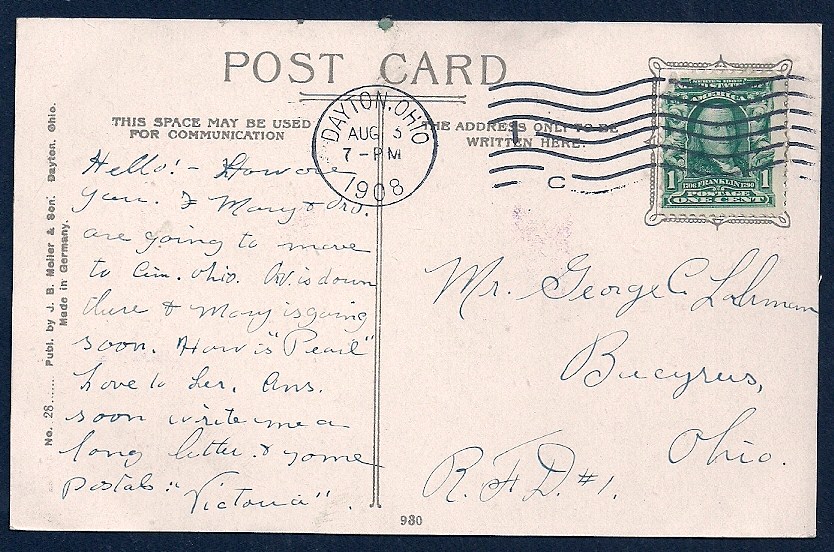 POST CARD
THIS SPACE MAY BE USED
FOR COMMUNICATION
THE ADDRESS ONLY TO BE
WRITTEN HERE.
DAYTON, OHIO
AUG 3
7-PM
1908
C
AMERICA
1 1706 FRANKLIN 1790 1
POSTAGE
ONE CENT
Hello! - How are
you. & Mary & Orv.
are going to move
to Cin. Ohio. Or. is down
there & Mary is going
soon. How is "Pearl"
Love to her. Ans.
soon write me a
long letter. & some
Postals "
Victoria".
Mr. George C. Lahrman
Bucyrus,
Ohio.
R. F. D. #1.
No. 28...... Publ. by J. B. Meller & Son. Dayton, Ohio.
Made in Germany.
930